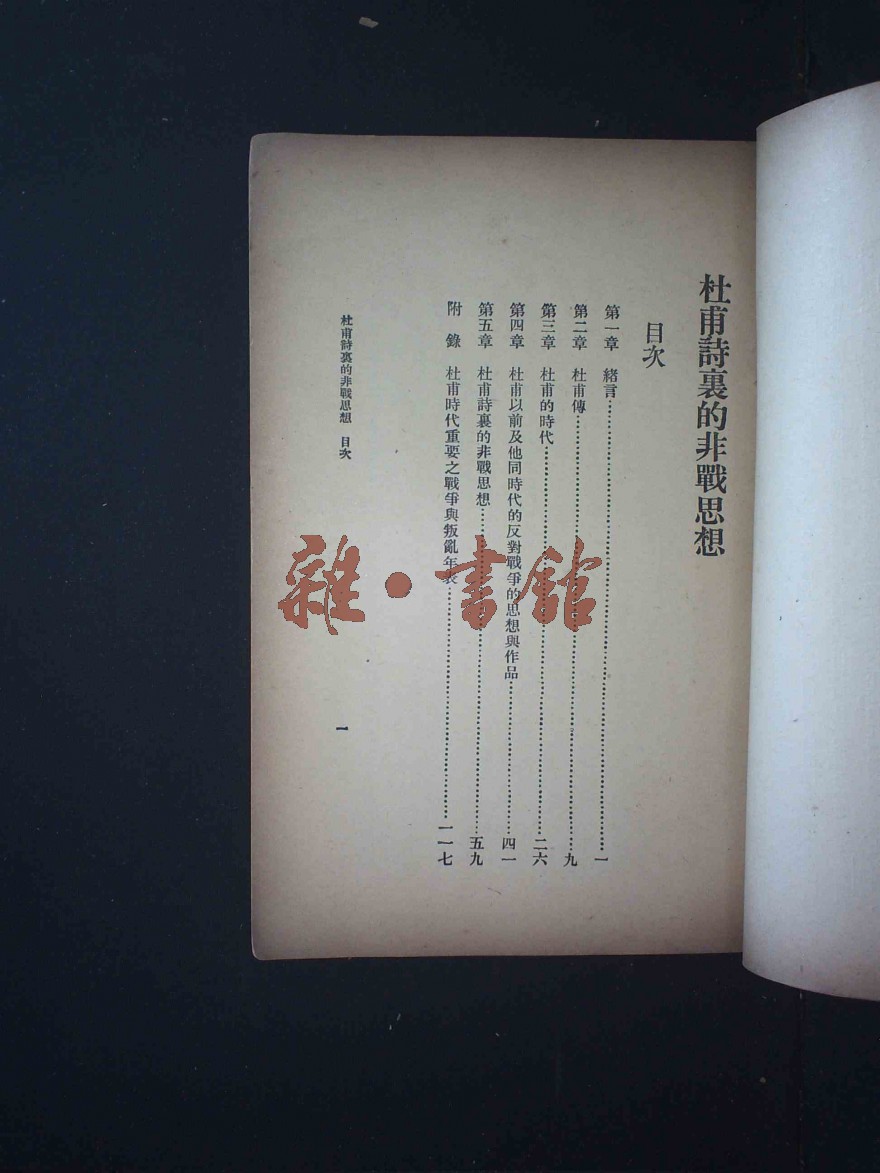 杜甫詩裏的非戰思想
目次
第一章　緒言……一
第二章　杜甫傳……九
第三章　杜甫的時代……二六
第四章　杜甫以前及他同時代的反對戰爭的思想與作品……四一
第五章　杜甫詩裏的非戰思想……五九
附　錄　杜甫時代重要之戰爭與叛亂年表……一一七
杜甫詩裏的非戰思想　目次
一
雜·書館